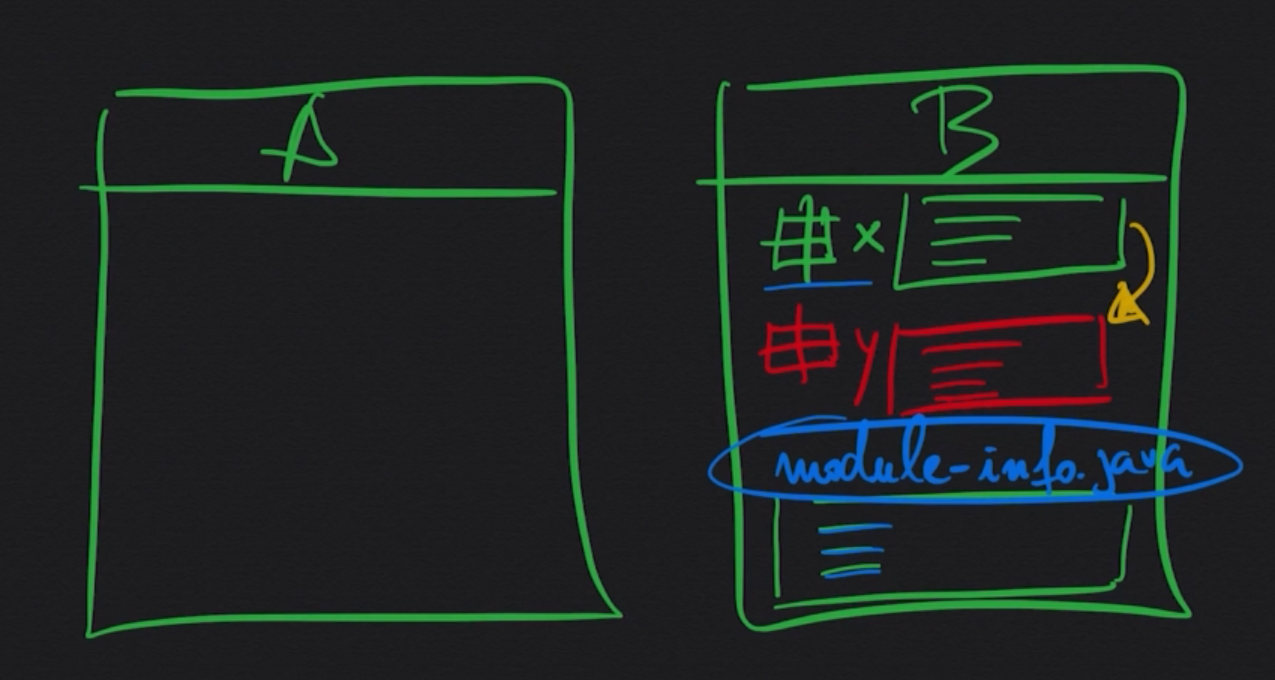 A
B
x
y
module-info.java